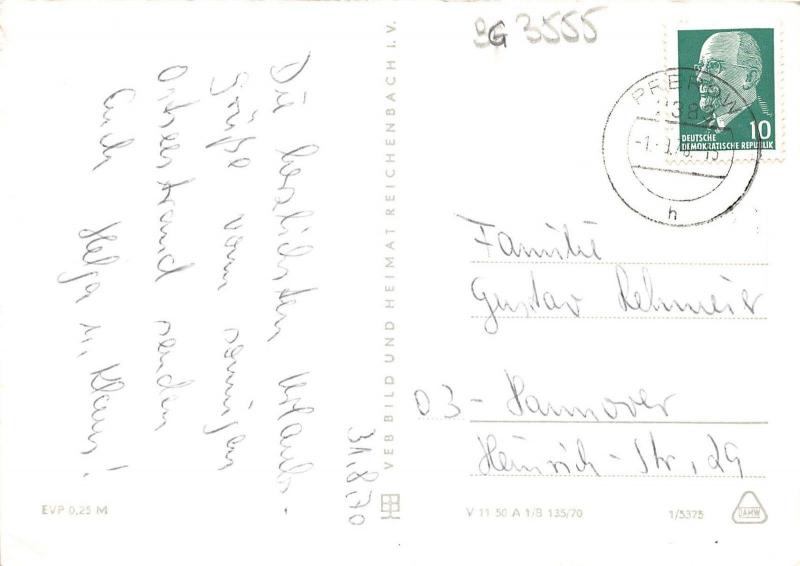 3555
PREROW
DEUTSCHE
DEMOKRATISCHE REPUBLIK
10
h
Die herzlichsten Urlaubs-
grüße vom sonnigen
Ostseestrand senden
Euch Helga u. Klaus!
31.8.70
VEB BILD UND HEIMAT REICHENBACH I. V.
Familie
Gustav Rehmeier
03 - Hannover
Heinrich-Str. 29
EVP 0,25 M
V 11 50 A 1/B 135/70
1/5375
DAMW